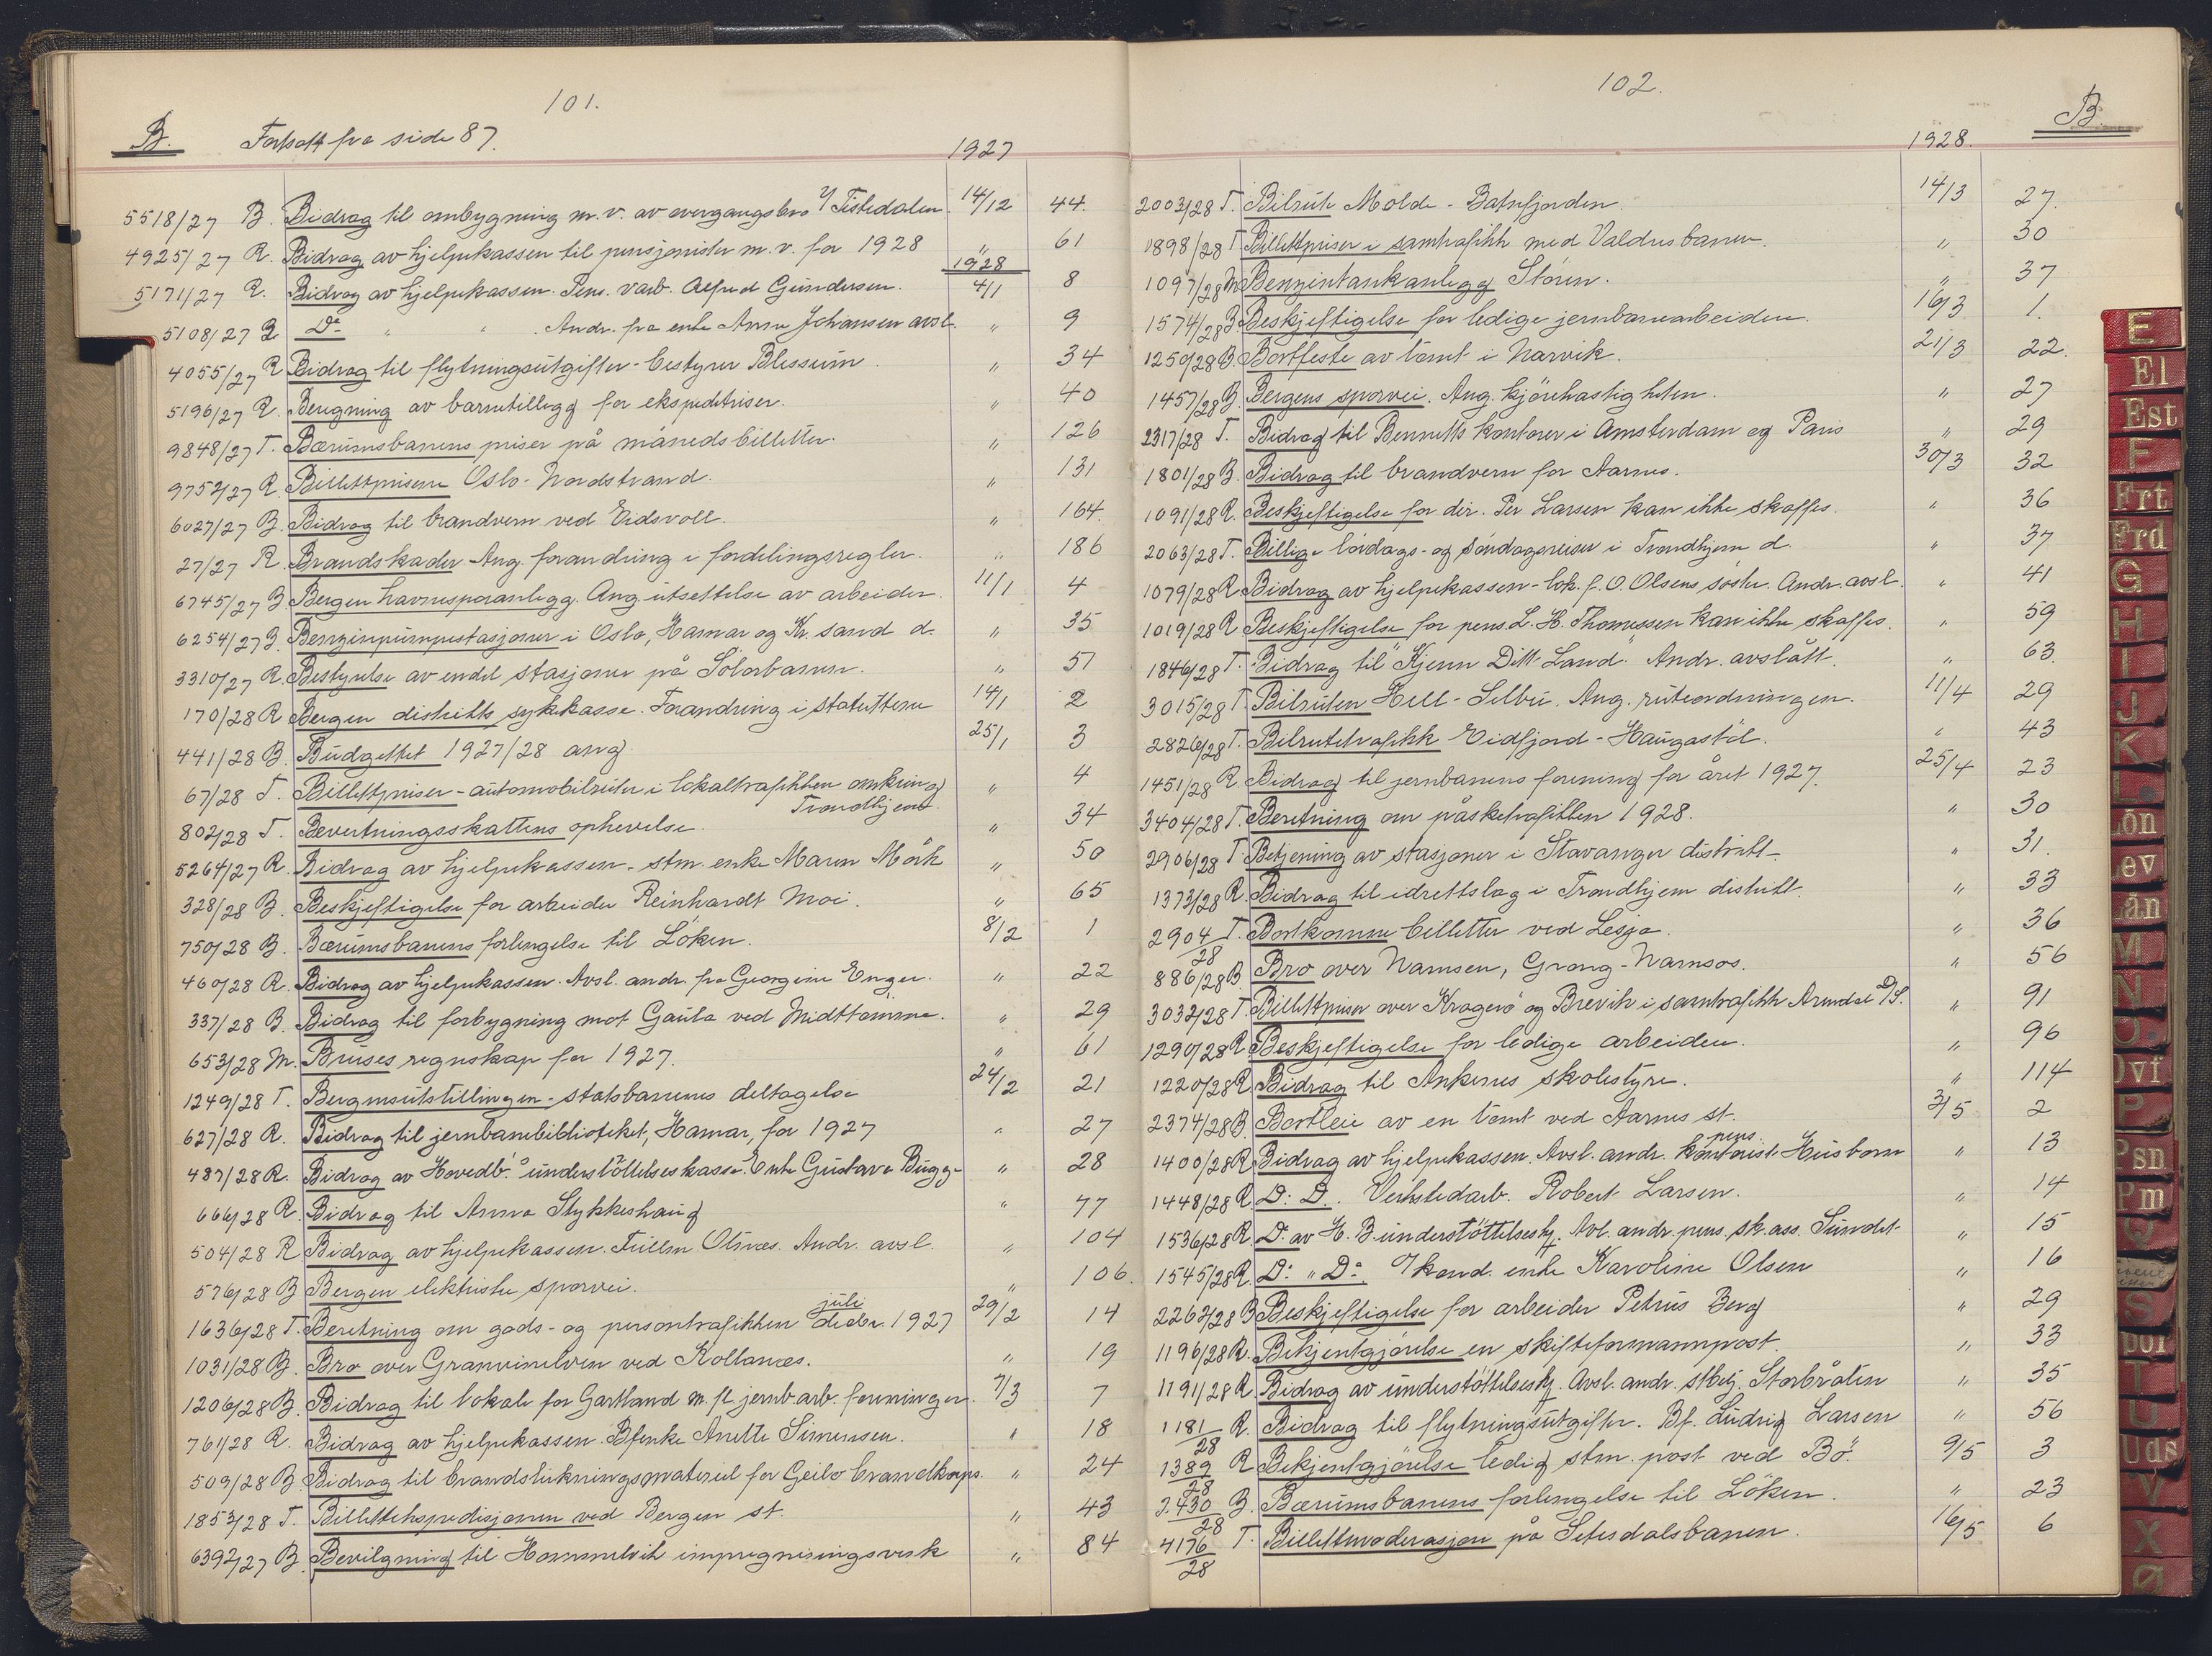 101.
B. Fortsatt fra side 87.
1927
5518/27 B. Bidrag til ombygning m.v. av overgangsbro i/ Tistedalen 14/12 44.
4925/27 R. Bidrag av hjelpekassen til pensjonister m.v. for 1928 " 61
1928
5171/27 R. Bidrag av hjelpekassen. Pens. varb. Alfred Gundersen. 4/1 8
5108/27 R Do " " Andr. fra enke Anna Johansen avsl. " 9
4055/27 R Bidrag til flytningsutgifter - bestyrer Blessum " 34
5196/27 R. Beregning av barnetillegg for ekspeditriser. " 40
9848/27 T. Bærumsbanens priser på månedsbilletter. " 126
9752/27 R. Billettprisene Oslo - Nordstrand. " 131
6027/27 B. Bidrag til brandvern ved Eidsvoll. " 164.
27/27 R. Brandskader. Ang. forandring i fordelingsregler. " 186
6745/27 B Bergen havnesporanlegg. Ang. utsettelse av arbeider. 11/1 4
6254/27 B. Benzinpumpestasjoner i Oslo, Hamar og Kr. sand d. " 35
3310/27 R. Bestyrelse av endel stasjoner på Solørbanen. " 51
170/28 R Bergen distrikts sykekasse. Forandring i statuttene 14/1 2
441/28 B. Budgettet 1927/28 ang. 25/1 3
67/28 T. Billettpriser - automobilruter i lokaltrafikken omkring Trondhjem. " 4
802/28 T. Bevertningsskattens ophevelse. " 34
5264/27 R. Bidrag av hjelpekassen - stm. enke Maren Mörk " 50
328/28 B. Beskjeftigelse for arbeider Reinhardt Moi. " 65
750/28 B. Bærumsbanens forlengelse til Löken. 8/2 1
460/28 R. Bidrag av hjelpekassen. Avsl. andr. fra Georgine Enger. " 22
337/28 B. Bidrag til forbygning mot Gaula ved Midttömme. " 29
653/28 M. Bruses regnskap for 1927. " 61
1249/28 T. Bergensutstillingen - statsbanenes deltagelse 24/2 21
627/28 R. Bidrag til jernbanebiblioteket, Hamar, for 1927 " 27
487/28 R. Bidrag av Hovedb. understöttelseskasse. Enke Gustava Bugge " 28
666/28 R. Bidrag til Anna Stykkeshaug " 77
504/28 R Bidrag av hjelpekassen. Fullm Olsnes. Andr. avsl. " 104
576/28 B Bergen elektriske sporvei. " 106.
1636/28 T. Beretning om gods- og persontrafikken juli decbr. 1927 29/2 14
1031/28 B. Bro over Granvinelven ved Kollanes. " 19
1206/28 B. Bidrag til lokale for Gartland m. fl. jernb.arb. foreninger. 7/3 7
761/28 R. Bidrag av hjelpekassen. Bfenke Anette Simensen. " 18
509/28 B. Bidrag til brandslukningsmateriel for Geilo brandkorps. " 24
1853/28 T. Billettekspedisjonen ved Bergen st. " 43
6392/27 B. Bevilgning til Hommelvik impregneringsverk " 84
102.
B.
1928.
2003/28 T. Bilrute Molde - Batnfjorden. 14/3 27.
1898/28 T Billettpriser i samtrafikk med Valdresbanen. " 30
1097/28 M Benzintankanlegg Stören. " 37
1574/28 B. Beskjeftigelse for ledige jernbanearbeidere. 16/3 1.
1250/28 B. Bortfeste av tomt i Narvik. 21/3 22.
1457/28 B. Bergens sporvei. Ang. kjörehastigheten. " 27
2317/28 T. Bidrag til Bennetts kontorer i Amsterdam og Paris " 29
1801/28 B. Bidrag til brandvern for Aarnes. 30/3 32
1091/28 R. Beskjeftigelse for dir. Per Larsen kan ikke skaffes. " 36
2063/28 T. Billige lördags- og söndagsreiser i Trondhjem d. " 37
1079/28 R Bidrag av hjelpekassen - lok. f. O. Olsens söster. Andr. avsl. " 41
1019/28 R Beskjeftigelse for pens. L. H. Thomessen kan ikke skaffes. " 59
1846/28 T. Bidrag til "Kjenn Ditt Land". Andr. avslått. " 63.
3015/28 T Bilruten Hell - Selbu. Ang. ruteordningen. 11/4 29
2826/28 T. Bilrutetrafikk Eidfjord - Haugastöl. " 43
1451/28 R Bidrag til jernbanens forening for året 1927. 25/4 23
3404/28 T. Beretning om påsketrafikken 1928. " 30
2906/28 T Betjening av stasjoner i Stavanger distrikt. " 31.
1373/28 R Bidrag til idrettslag i Trondhjem distrikt. " 33
2904/28 T. Bortkomne billetter ved Lesja. " 36
886/28 B. Bro over Namsen, Grong - Namsos. " 56
3032/28 T. Billettpriser over Kragerö og Brevik i samtrafikk Arendal D/S. " 91
1290/28 R Beskjeftigelse for ledige arbeidere. " 96
1220/28 R Bidrag til Ankenes skolestyre. " 114
2374/28 B. Bortleie av en tomt ved Aarnes st. 3/5 2
1400/28 R Bidrag av hjelpekassen. Avsl. andr. pens. kontorist Husborn " 13
1448/28 R. D: D. Verkstedarb. Robert Larsen. " 14
1536/28 R. D. av H. B. understöttelseskj. Avl. andr. pens. sk. ass. Sundet " 15
1545/28 R. D: " D: Ikond. enke Karoline Olsen " 16
2262/28 B Beskjeftigelse for arbeider Petrus Berg " 29
1196/28 R. Bekjentgjörelse en skifteformannpost. " 33
1191/28 R. Bidrag av understöttelseskj. Avsl. andr. stbtj. Storbråten " 35
1181/28 R. Bidrag til flytningsutgifter. Bf. Ludvig Larsen " 56
1389/28 R Bekjentgjörelse ledig stm. post ved Bö. 9/5 3
2430/28 B. Bærumsbanens forlengelse til Löken. " 23
4176/28 T. Billettmoderasjon på Setesdalsbanen. 16/5 6
E
El
Est
F
Frt
Frd
G
H
I
J
K
L
Lön
Lev
Lån
M
N
O
Ovf
P
Psn
Pm
Q
S
T
U
Uds
V
X
Ø